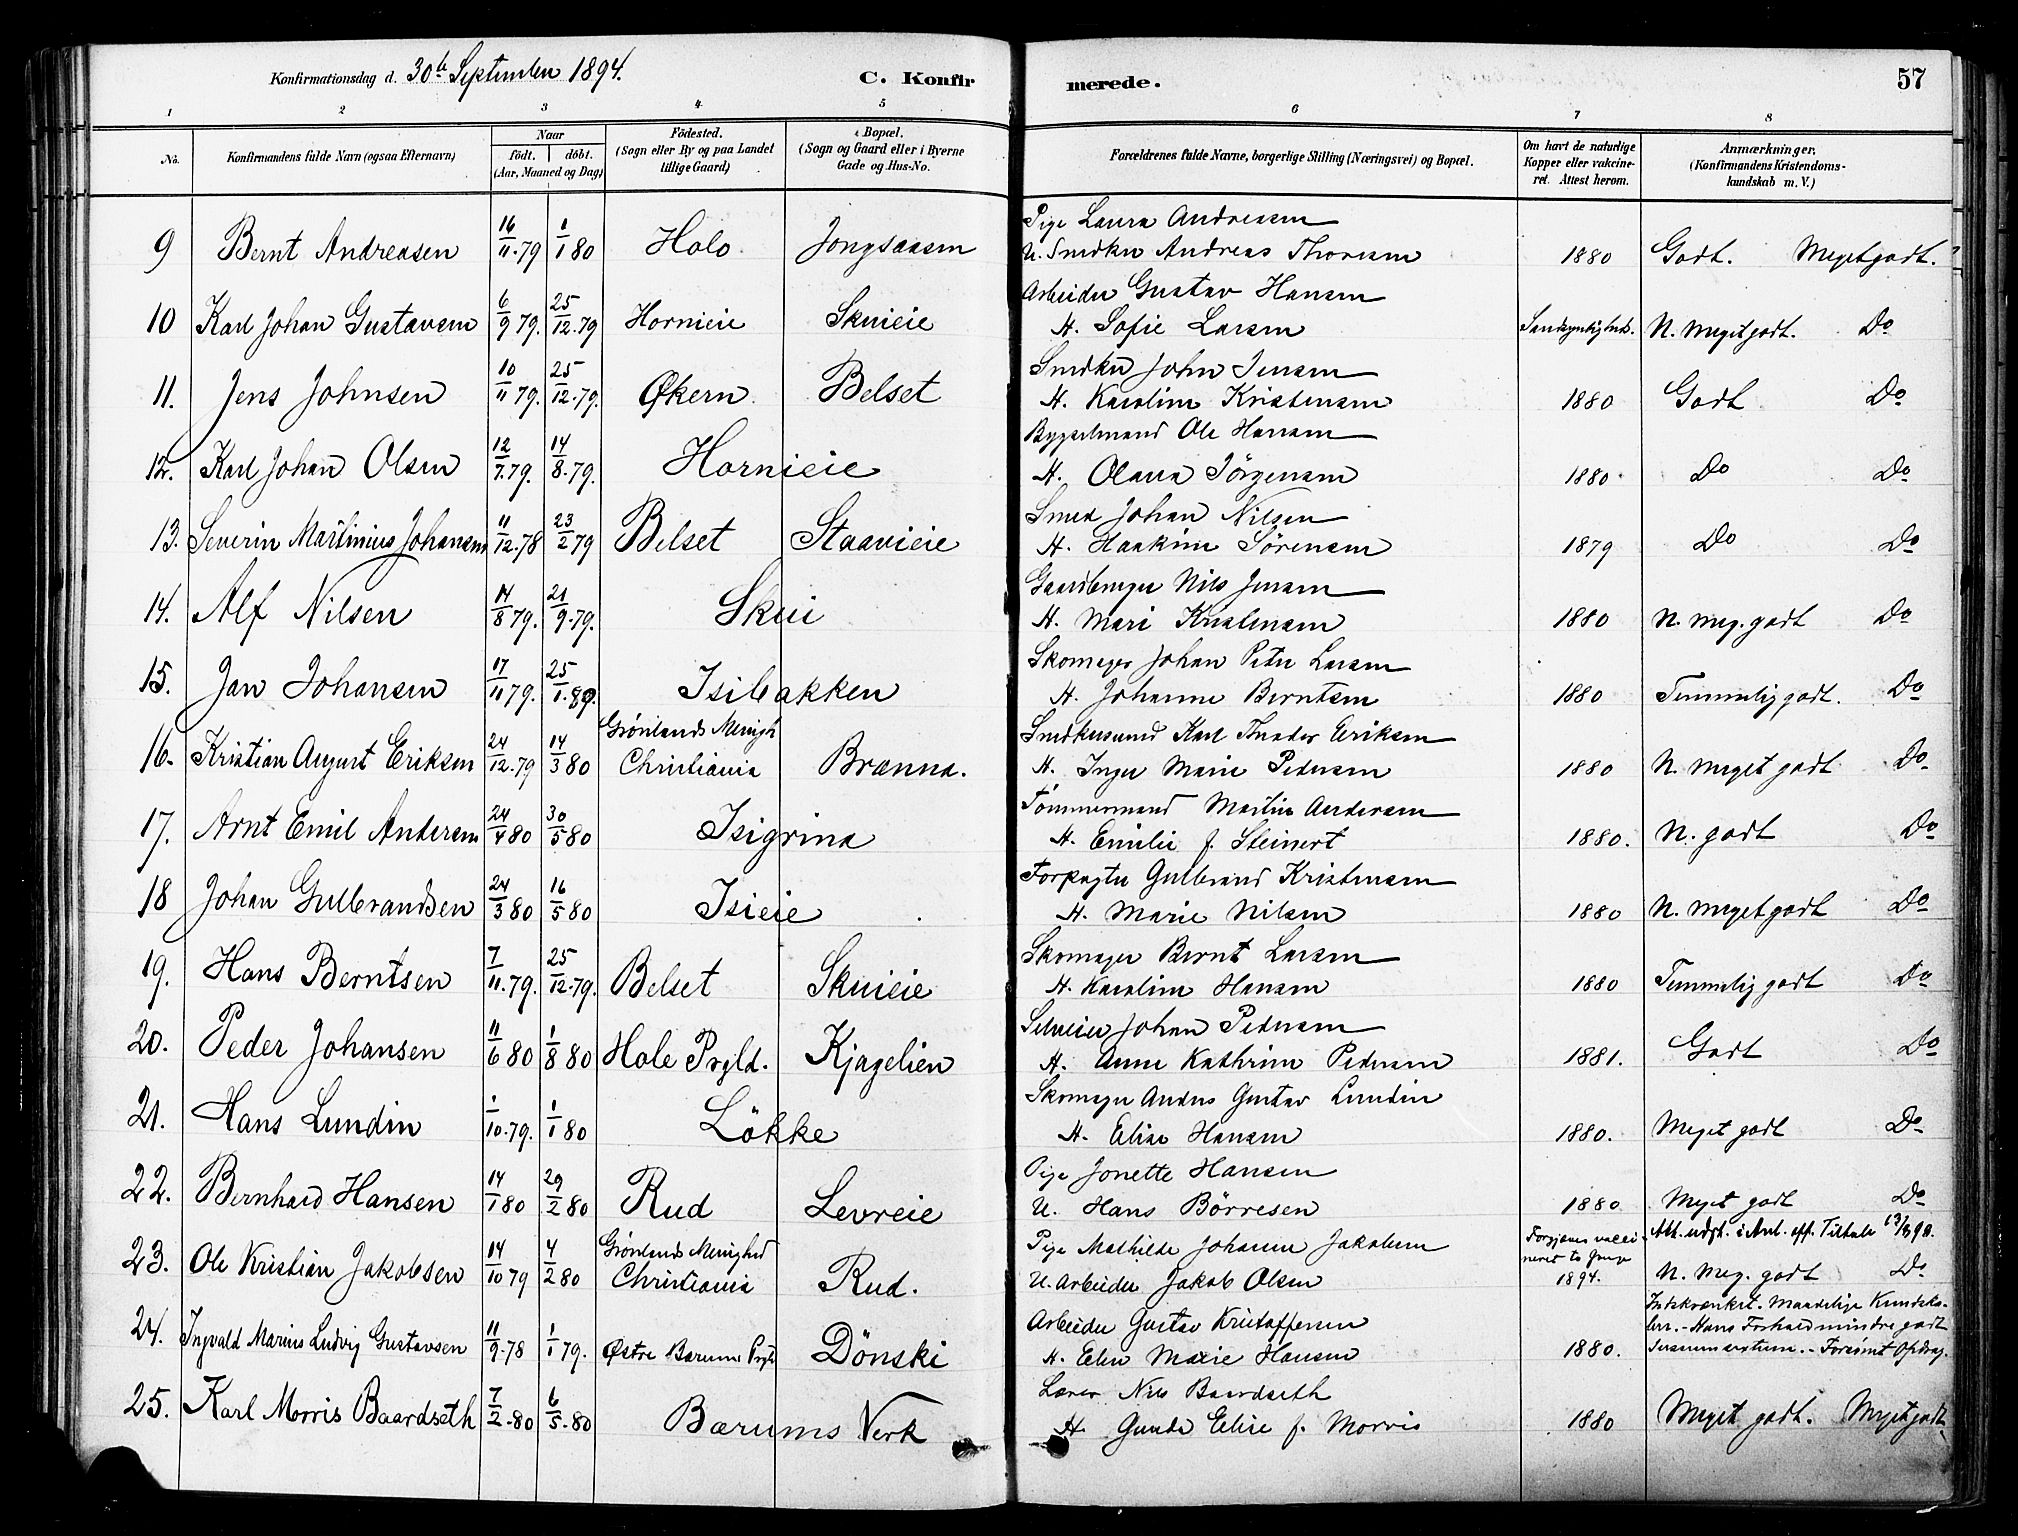 Konfirmationsdag d. 30te September 1894.
C. Konfir
merede.
57
1 2 3 4 5 6 7 8
No.
Konfirmandens fulde Navn (ogsaa Efternavn)
Naar
födt. döbt.
(Aar, Maaned og Dag)
Födested.
(Sogn eller By og paa Landet
tillige Gaard)
Bopæl.
(Sogn og Gaard eller i Byerne
Gade og Hus-No.
Forældrenes fulde Navne, borgerlige Stilling (Næringsvei) og Bopæl.
Om havt de naturlige
Kopper eller vakcine-
ret. Attest herom.
Anmærkninger,
(Konfirmandens Kristendoms-
kundskab m. V.)
Pige Laura Andreasen
9 Bernt Andreasen 16/11.79 1/1 80 Holo Jongsaasen U. Smedkn Andreas Thoresen 1880 Godt. Meget godt.
Arbeider Gustav Hansen
10 Karl Johan Gustavsen 6/9 79. 25/12.79 Hornieie Skuieie H. Sofie Larsen Sandsynligheds. N. Meget godt. Do
Smedkn John Jensen
11. Jens Johnsen 10/11 79. 25/12.79. Økern Belset H. Karoline Kristensen 1880 Godt Do
Bygselmand Ole Hansen
12. Karl Johan Olsen 12/7.79. 14/8.79. Hornieie H. Olava Jörgensen 1880. Do Do
Smed Johan Nilsen
13. Severin Martinius Johansen 11/12.78 23/2 79 Belset Staavieie H. Haakine Sörensen 1879 Do Do
Gaardbruger Nils Jensen
14. Alf Nilsen 14/8 79. 21/9.79. Skui H. Mari Kristensen 1880 N. meg. godt Do
Skomager Johan Peter Larsen
15. Jan Johansen 17/11 79. 25/1.80. Isibakken H. Johanne Berntsen 1880 Temmelig godt. Do
Grönlands Menigh
Smedkusmed Karl Theodor Eriksen
16. Kristian August Eriksen 24/12.79 14/3 80 Christiania Brænna. H. Inger Marie Pedersen 1880 N. meget godt Do
Tömmermand Martin Andersen
17. Arnt Emil Andersen 24/4 80 30/5 80 Isigrina H. Emilie f. Steinert 1880. N. godt Do
Forpagter Gulbrand Kristensen
18 Johan Gulbrandsen 24/3 80 16/5 80 Isieie H. Marie Nilsen 1880 N. Meget godt Do
Skomager Bernt Larsen
19. Hans Berntsen 7/11.79. 25/12.79. Belset Skuieie H. Karoline Hansen 1880 Temmelig godt Do
Selveier Johan Pedersen
20. Peder Johansen 11/6 80 1/8 80 Hole Prgld. Kjagelien H. Anne Kathrine Pedersen 1881. Godt Do
Skomager Anders Gustav Lundin
21. Hans Lundin 1/10.79. 1/1 80 Lökke H. Elise Hansen 1880. Meget godt Do
Pige Jonette Hansen
22. Bernhard Hansen 14/1 80 29/2 80 Rud Levreie U. Hans Börresen 1880 Meget godt Do
Grönlands Menighed
Pige Mathilde Johanne Jakobsen
23. Ole Kristian Jakobsen 14/10 79 4/2 80 Christiania Rud. U. Arbeider Jakob Olsen 1894. N. Meg. godt Do
Arbeider Gustav Kristoffersen
24. Ingvald Marius Ludvig Gustavsen 11/9.78 1/1 79. Østre Bærums Prgld Dönski H. Elen Marie Hansen 1880.
Lærer Nils Baardseth
25. Karl Morris Baardseth 7/2.80 6/5.80 Bærums Verk H. Gunda Elise f. Morris 1880 Meget godt. Meget godt.